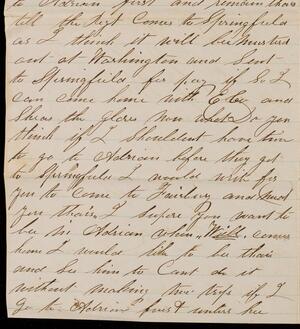 to Adrian first and remain thair
till the Regt comes to Springfield
as I think it will be musterd
out at Washington and sent
to Springfield for pay if so I
can come home with E Co and
Shear the glores now what Do you
think if I shouldent have tim
to go to Adrian before they got
to Springfield I would wish for
you to come to Fairbury and meet
you thair I supose you want to
be in Adrian when Will comes
home I would like to be thair
and see him to Cant do it
without making two trips if I
go to Adrian first unless he